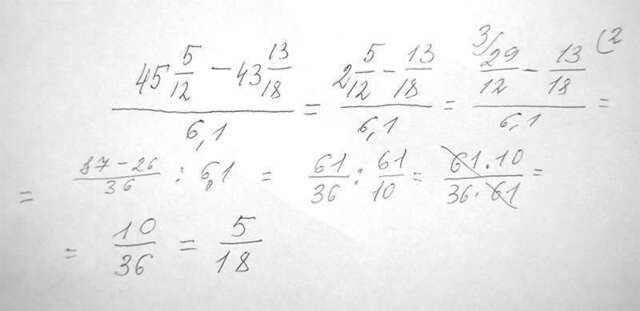 (45 5/12 − 43 13/18)/6,1 = (2 5/12 − 13/18)/6,1 = (3/ 29/12 − 13/18 (2)/6,1 =
= (87 − 26)/36 : 6,1 = 61/36 : 61/10 = (61 · 10)/(36 · 61) =
= 10/36 = 5/18